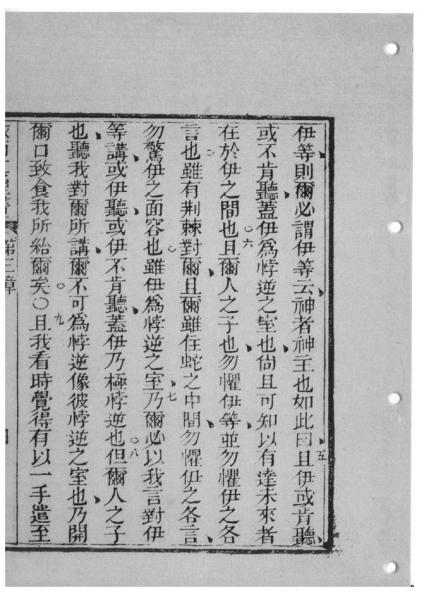 伊等則爾必謂伊等云神者神主也如此曰且伊或肯聽
五
或不肯聽蓋伊為悖逆之室也尚且可知以有達未來者
六
在於伊之間也且爾人之子也勿懼伊等並勿懼伊之各
言也雖有荆棘對爾且爾雖住蛇之中間勿懼伊之各言
七
勿驚伊之面容也雖伊為悖逆之室乃爾必以我言對伊
八
等講或伊聽或伊不肯聽蓋伊乃極悖逆也但爾人之子
也聽我對爾所講爾不可為悖逆像彼悖逆之室也乃開
九
爾口致食我所給爾矣○且我看時覺得有以一手遣至
第三章